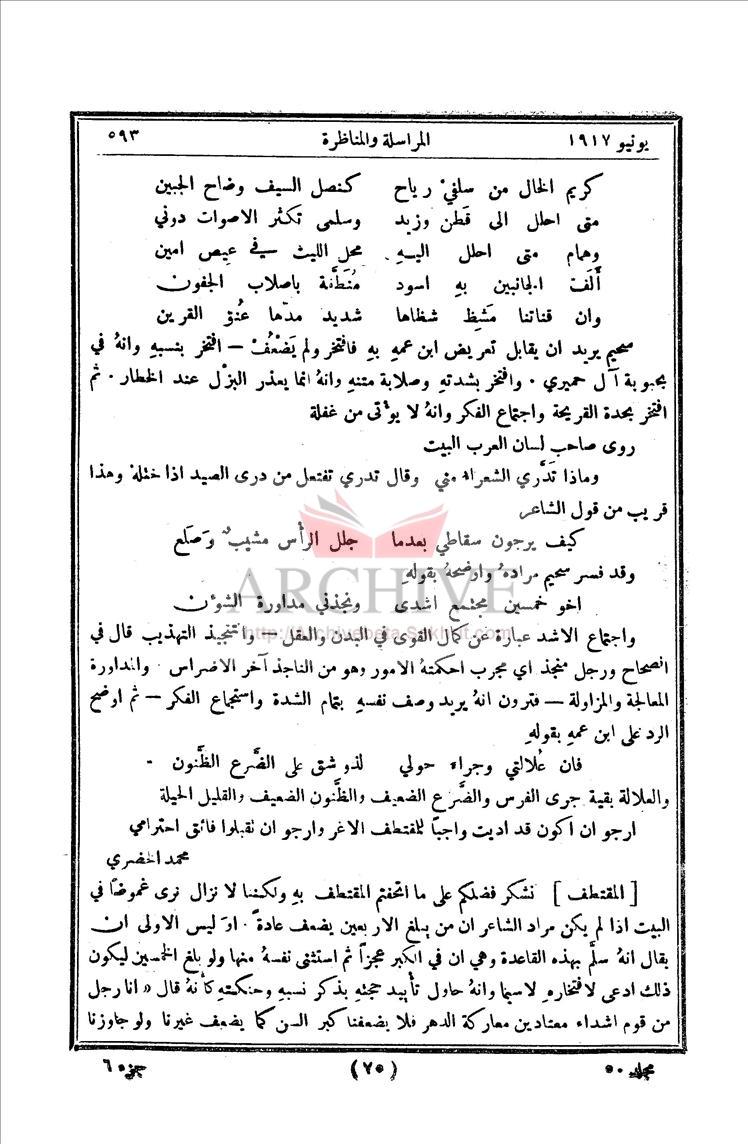 يونيو ١٩١٧ المراسلة والمناظرة ٥٩٣
كريم الخال من سلفيْ رياح كنصل السيف وضاح الجبين
متى احلل الى قَطَن وزيد وسلمى تكثر الاصوات دوني
وهمام متى احلل اليهِ محل الليث في عيص امين
أَلَفّ الجانبين بهِ اسود مُنَطَّقة باصلاب الجفون
وان قناتنا مَشِظ شظاها شديد مدّها عُنُق القرين
سحيم يريد ان يقابل تعريض ابن عمهِ بهِ فافتخر ولم يَضْعُفْ — افتخر بنسبهِ وانهُ في
بحبوبة آل حميري . وافتخر بشدتهِ وصلابة متنهِ وانهُ انما يعذر البزْل عند الخطار . ثم
افتخر بحدة القريحة واجتماع الفكر وانهُ لا يؤتى من غفلة
روى صاحب لسان العرب البيت
وماذا تَدَّري الشعراء مني وقال تدري تفتعل من درى الصيد اذا ختلهُ وهذا
قريب من قول الشاعر
كيف يرجون سقاطي بعدما جلل الرأْس مشيبٌ وَصَلَع
وقد فسر سحيم مرادهُ واوضحهُ بقولهِ
اخو خمسين مجتمع اشدى ونجذني مداورة الشؤن
ARCHIVE
http://Archivebeta.Sakhrit.com
واجتماع الاشد عبارة عن كمال القوى في البدن والعقل — والتنجيذ التهذيب قال في
الصحاح ورجل منجذ اي مجرب احكمتهُ الامور وهو من الناجذ آخر الاضراس . والمداورة
المعالجة والمزاولة — فترون انهُ يريد وصف نفسهِ بتمام الشدة واستجماع الفكر — ثم اوضح
الرد على ابن عمهِ بقولهِ
فان عُلالتي وجراء حولي لذو شق على الضَّرع الظَّنون
والعلالة بقية جرى الفرس والضَّرع الضعيف والظَّنون الضعيف والقليل الحيلة
ارجو ان اكون قد اديت واجباً للمقتطف الاغر وارجو ان تقبلوا فائق احترامي
محمد الخضري
[ المقتطف ] نشكر فضلكم على ما اتحفتم المقتطف بهِ ولكننا لا نزال نرى غموضاً في
البيت اذا لم يكن مراد الشاعر ان من يبلغ الاربعين يضعف عادةً . او ليس الاولى ان
يقال انهُ سلَّم بهذه القاعدة وهي ان في الكبر عجزاً ثم استثنى نفسهُ منها ولو بلغ الخمسين ليكون
ذلك ادعى لافتخارهِ لاسيما وانهُ حاول تأييد حجتهِ بذكر نسبهِ وحنكتهِ كأنهُ قال « انا رجل
من قوم اشداء معتادين معاركة الدهر فلا يضعفنا كبر السن كما يضعف غيرنا ولو جاوزنا
مجلد ٥٠ (٧٥) جزء ٦